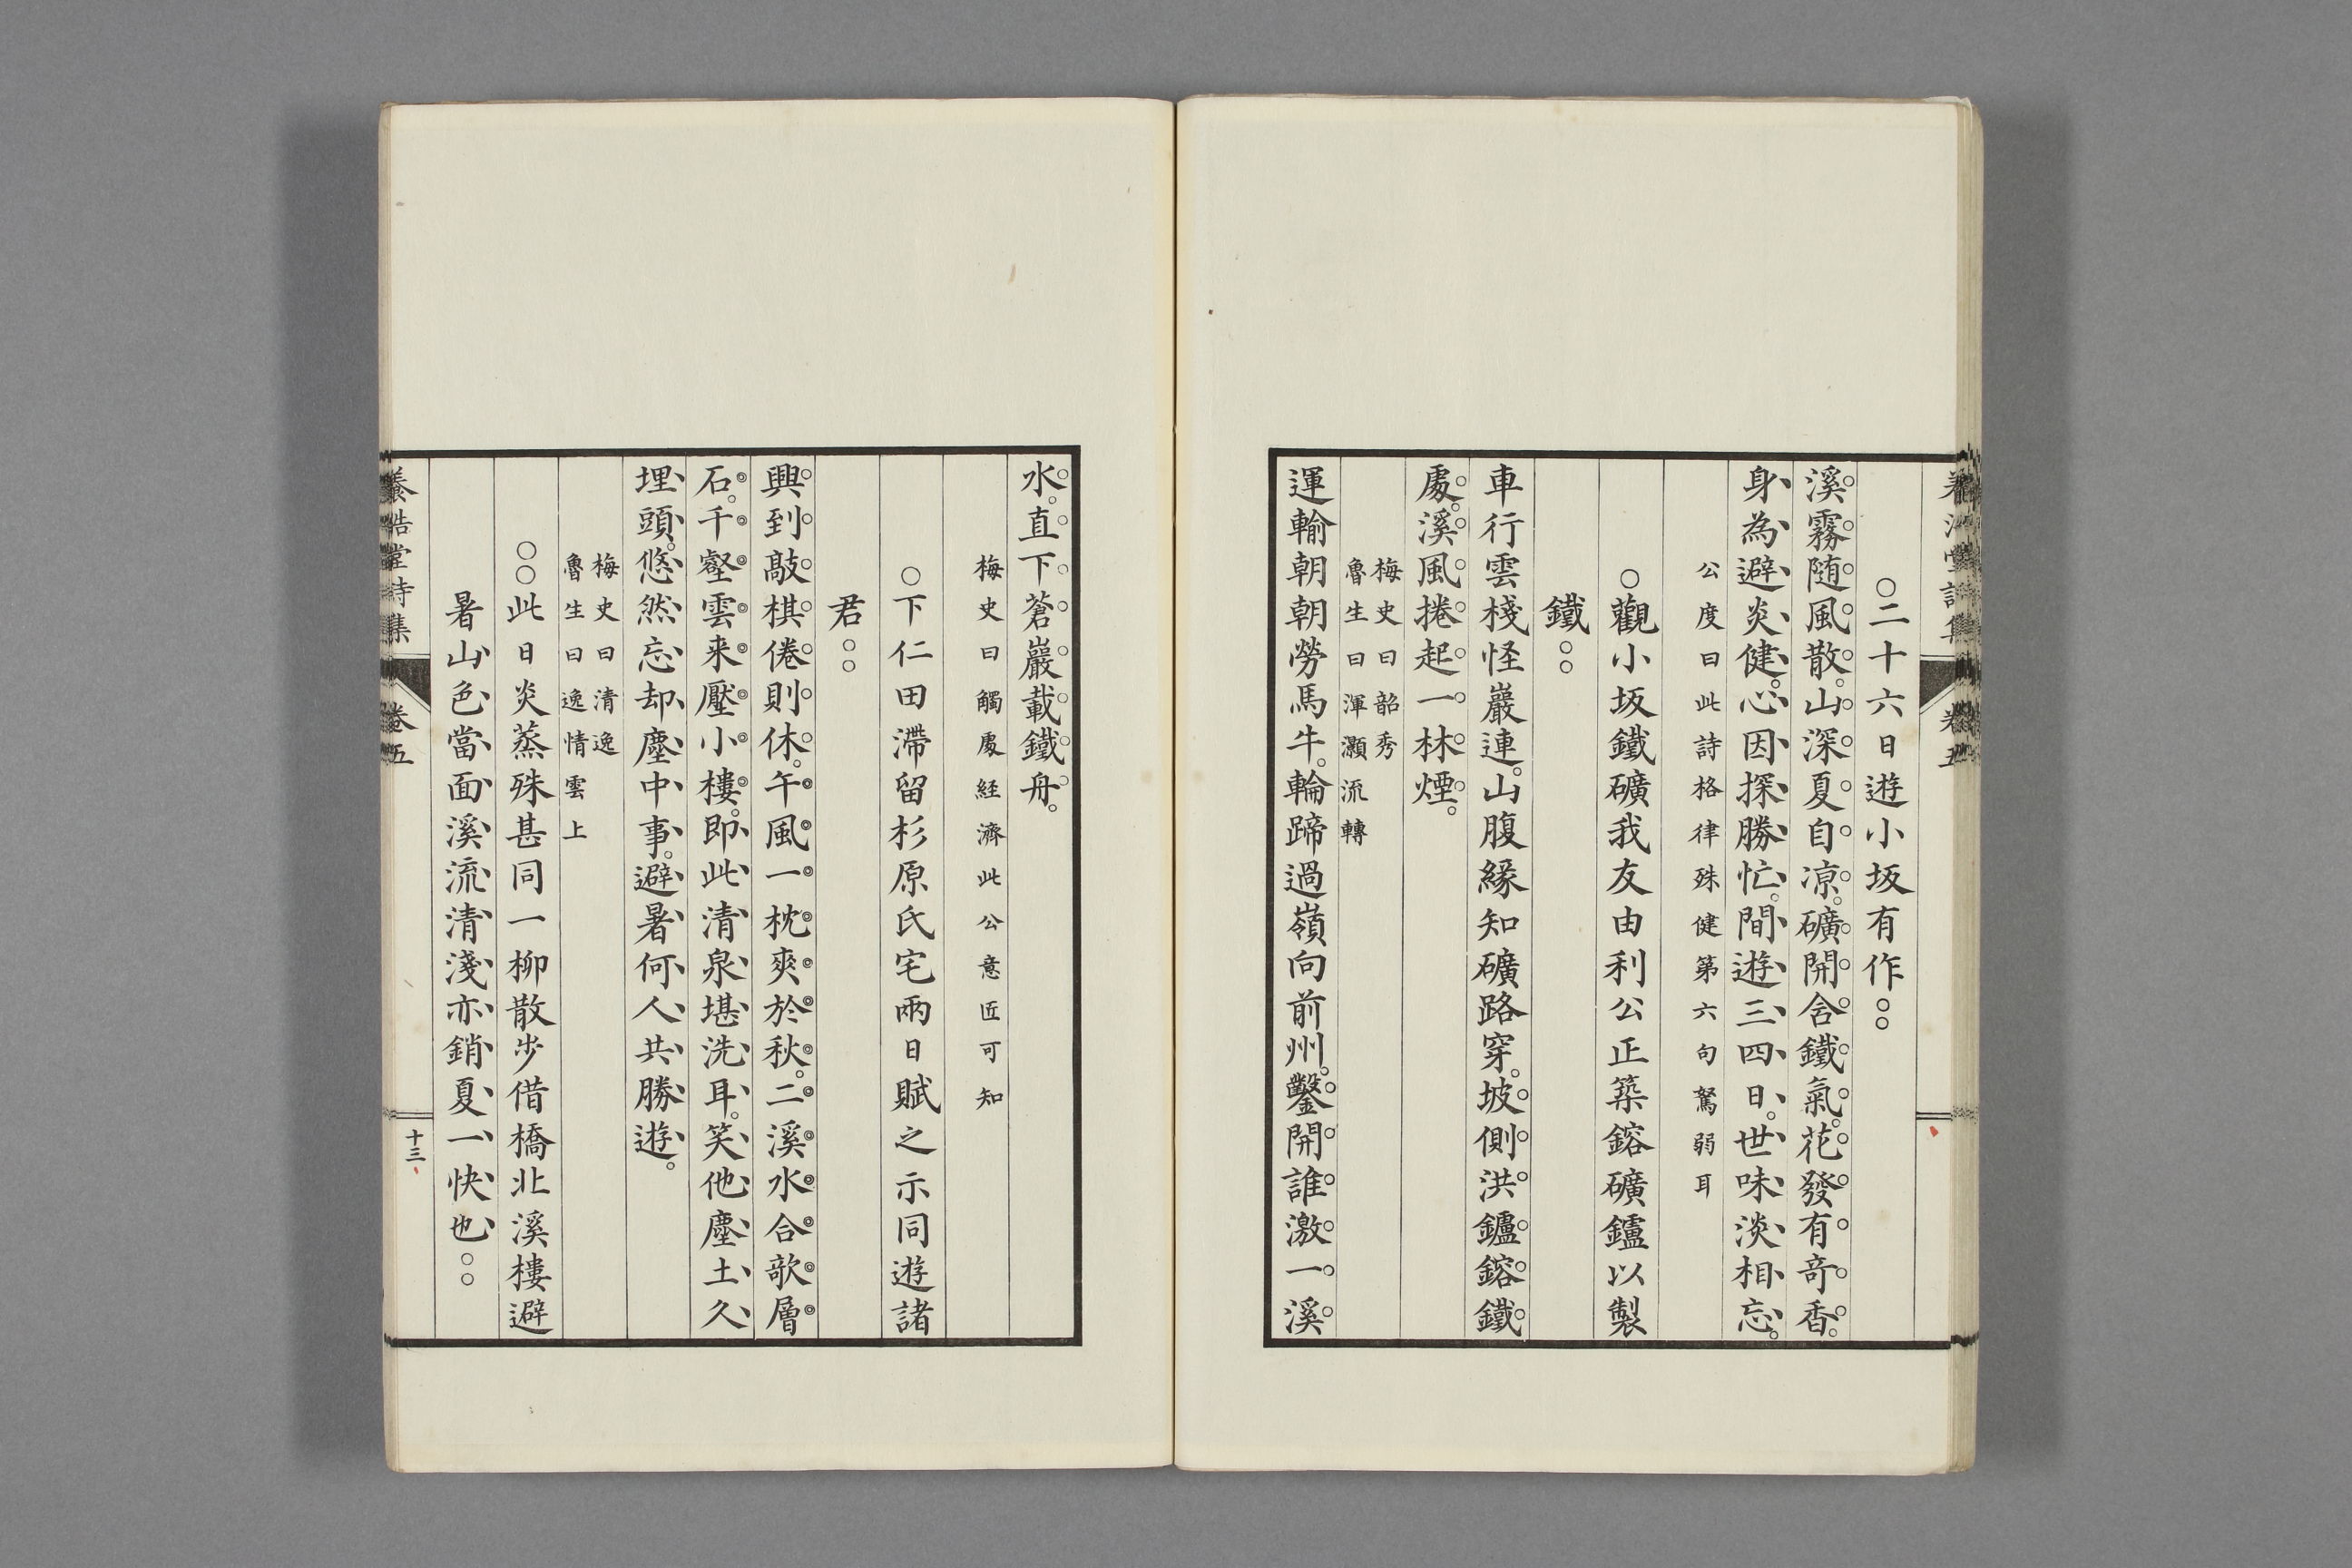 ○二十六日遊小坂有作○○
溪霧随風散。山深夏自凉。礦開含鐵氣。花發有奇香。
身為避炎健。心因探勝忙。間遊三四日。世味淡相忘。
公度曰此詩格律殊健第六句駑弱耳
○觀小坂鐵礦我友由利公正築鎔礦鑪以製
鐵○○
車行雲棧怪巖連。山腹緣知礦路穿。坡側洪鑪鎔鐵
處。溪風捲起一林煙。
梅史曰韶秀
魯生曰渾灝流轉
運輸朝朝勞馬牛。輪蹄過嶺向前州。鑿開誰激一溪
水。直下蒼巖載鐵舟。
梅史曰觸處経濟此公意匠可知
○下仁田滯留杉原氏宅兩日賦之示同遊諸
君○○
興到敲棋倦則休。午風一枕爽於秋。二溪水合歌層
石。千壑雲来壓小樓。即此清泉堪洗耳。笑他塵土久
埋頭。悠然忘却塵中事。避暑何人共勝遊。
梅史曰清逸
魯生曰逸情雲上
○○此日炎蒸殊甚同一柳散步借橋北溪樓避
暑山色當面溪流清淺亦銷夏一快也○○
養浩堂詩集
卷五
十三